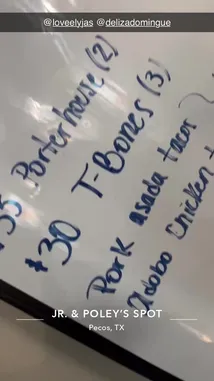 @loveelyjas @delizadomingue
Porterhouse (2)
$30 T-Bones (3)
Pork asada tacos
adobo Chicken
JR. & POLEY'S SPOT
Pecos, TX